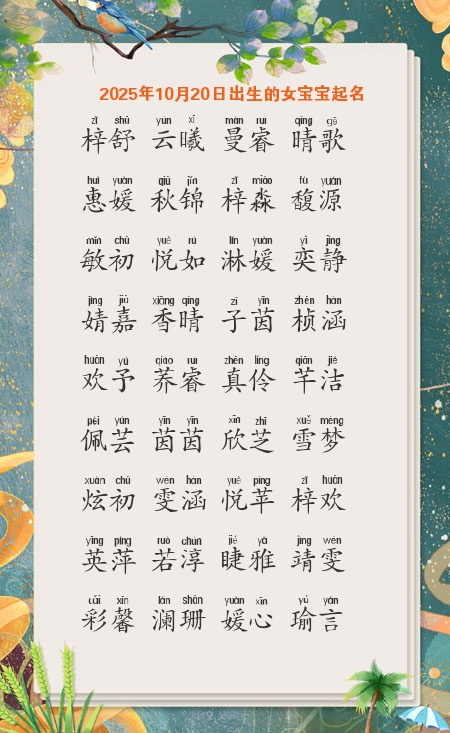 2025年10月20日出生的女宝宝起名
zǐ shū yún xī màn ruì qíng gē
梓舒 云曦 曼睿 晴歌
huì yuán qiū jǐn zǐ miǎo fù yuán
惠媛 秋锦 梓淼 馥源
mǐn chū yuè rú lín yuán yì jìng
敏初 悦如 淋媛 奕静
jìng jiā xiāng qíng zǐ yīn zhēn hán
婧嘉 香晴 子茵 桢涵
huān yú qiáo ruì zhēn líng qiān jié
欢予 荞睿 真伶 芊洁
pèi yún yīn yīn xīn zhī xuě mèng
佩芸 茵茵 欣芝 雪梦
xuàn chū wén hán yuè píng zǐ huān
炫初 雯涵 悦苹 梓欢
yīng píng ruò chún jié yǎ jìng wén
英萍 若淳 睫雅 靖雯
cǎi xīn lán shān yuán xīn yú yán
彩馨 澜珊 媛心 瑜言